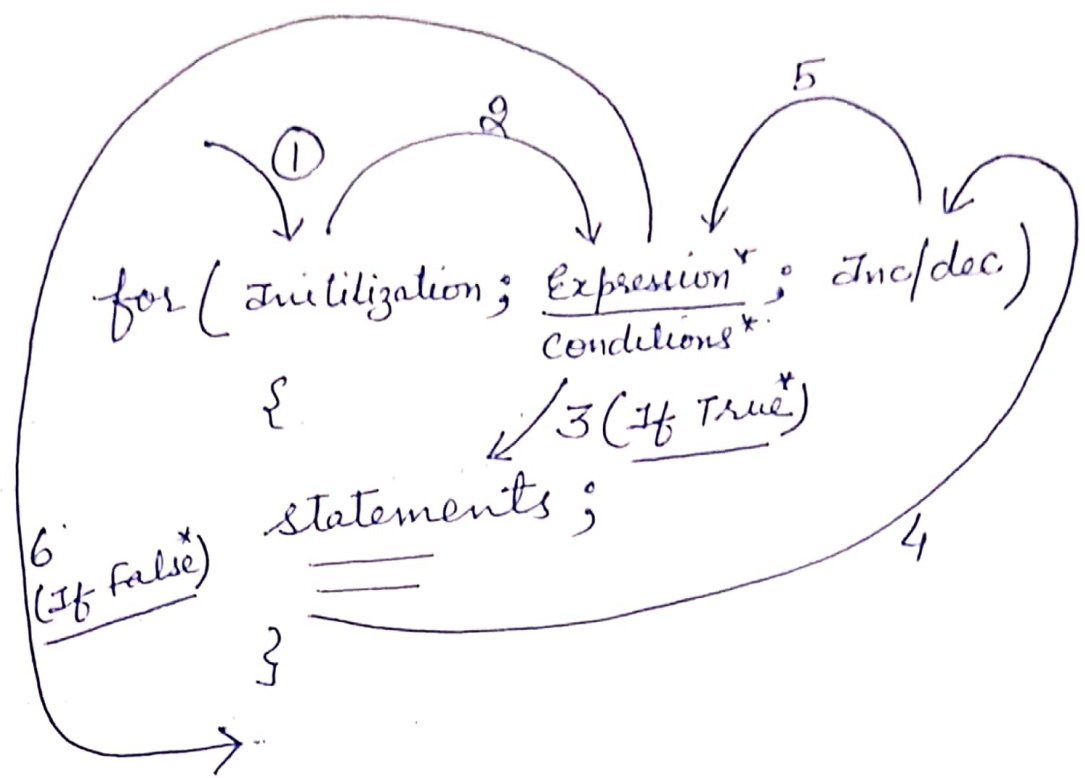 5
2
1
for ( Initilization ; Expression* ; Inc/dec )
Conditions*
{
3 (If True*)
statements ;
4
6
(If false*)
}